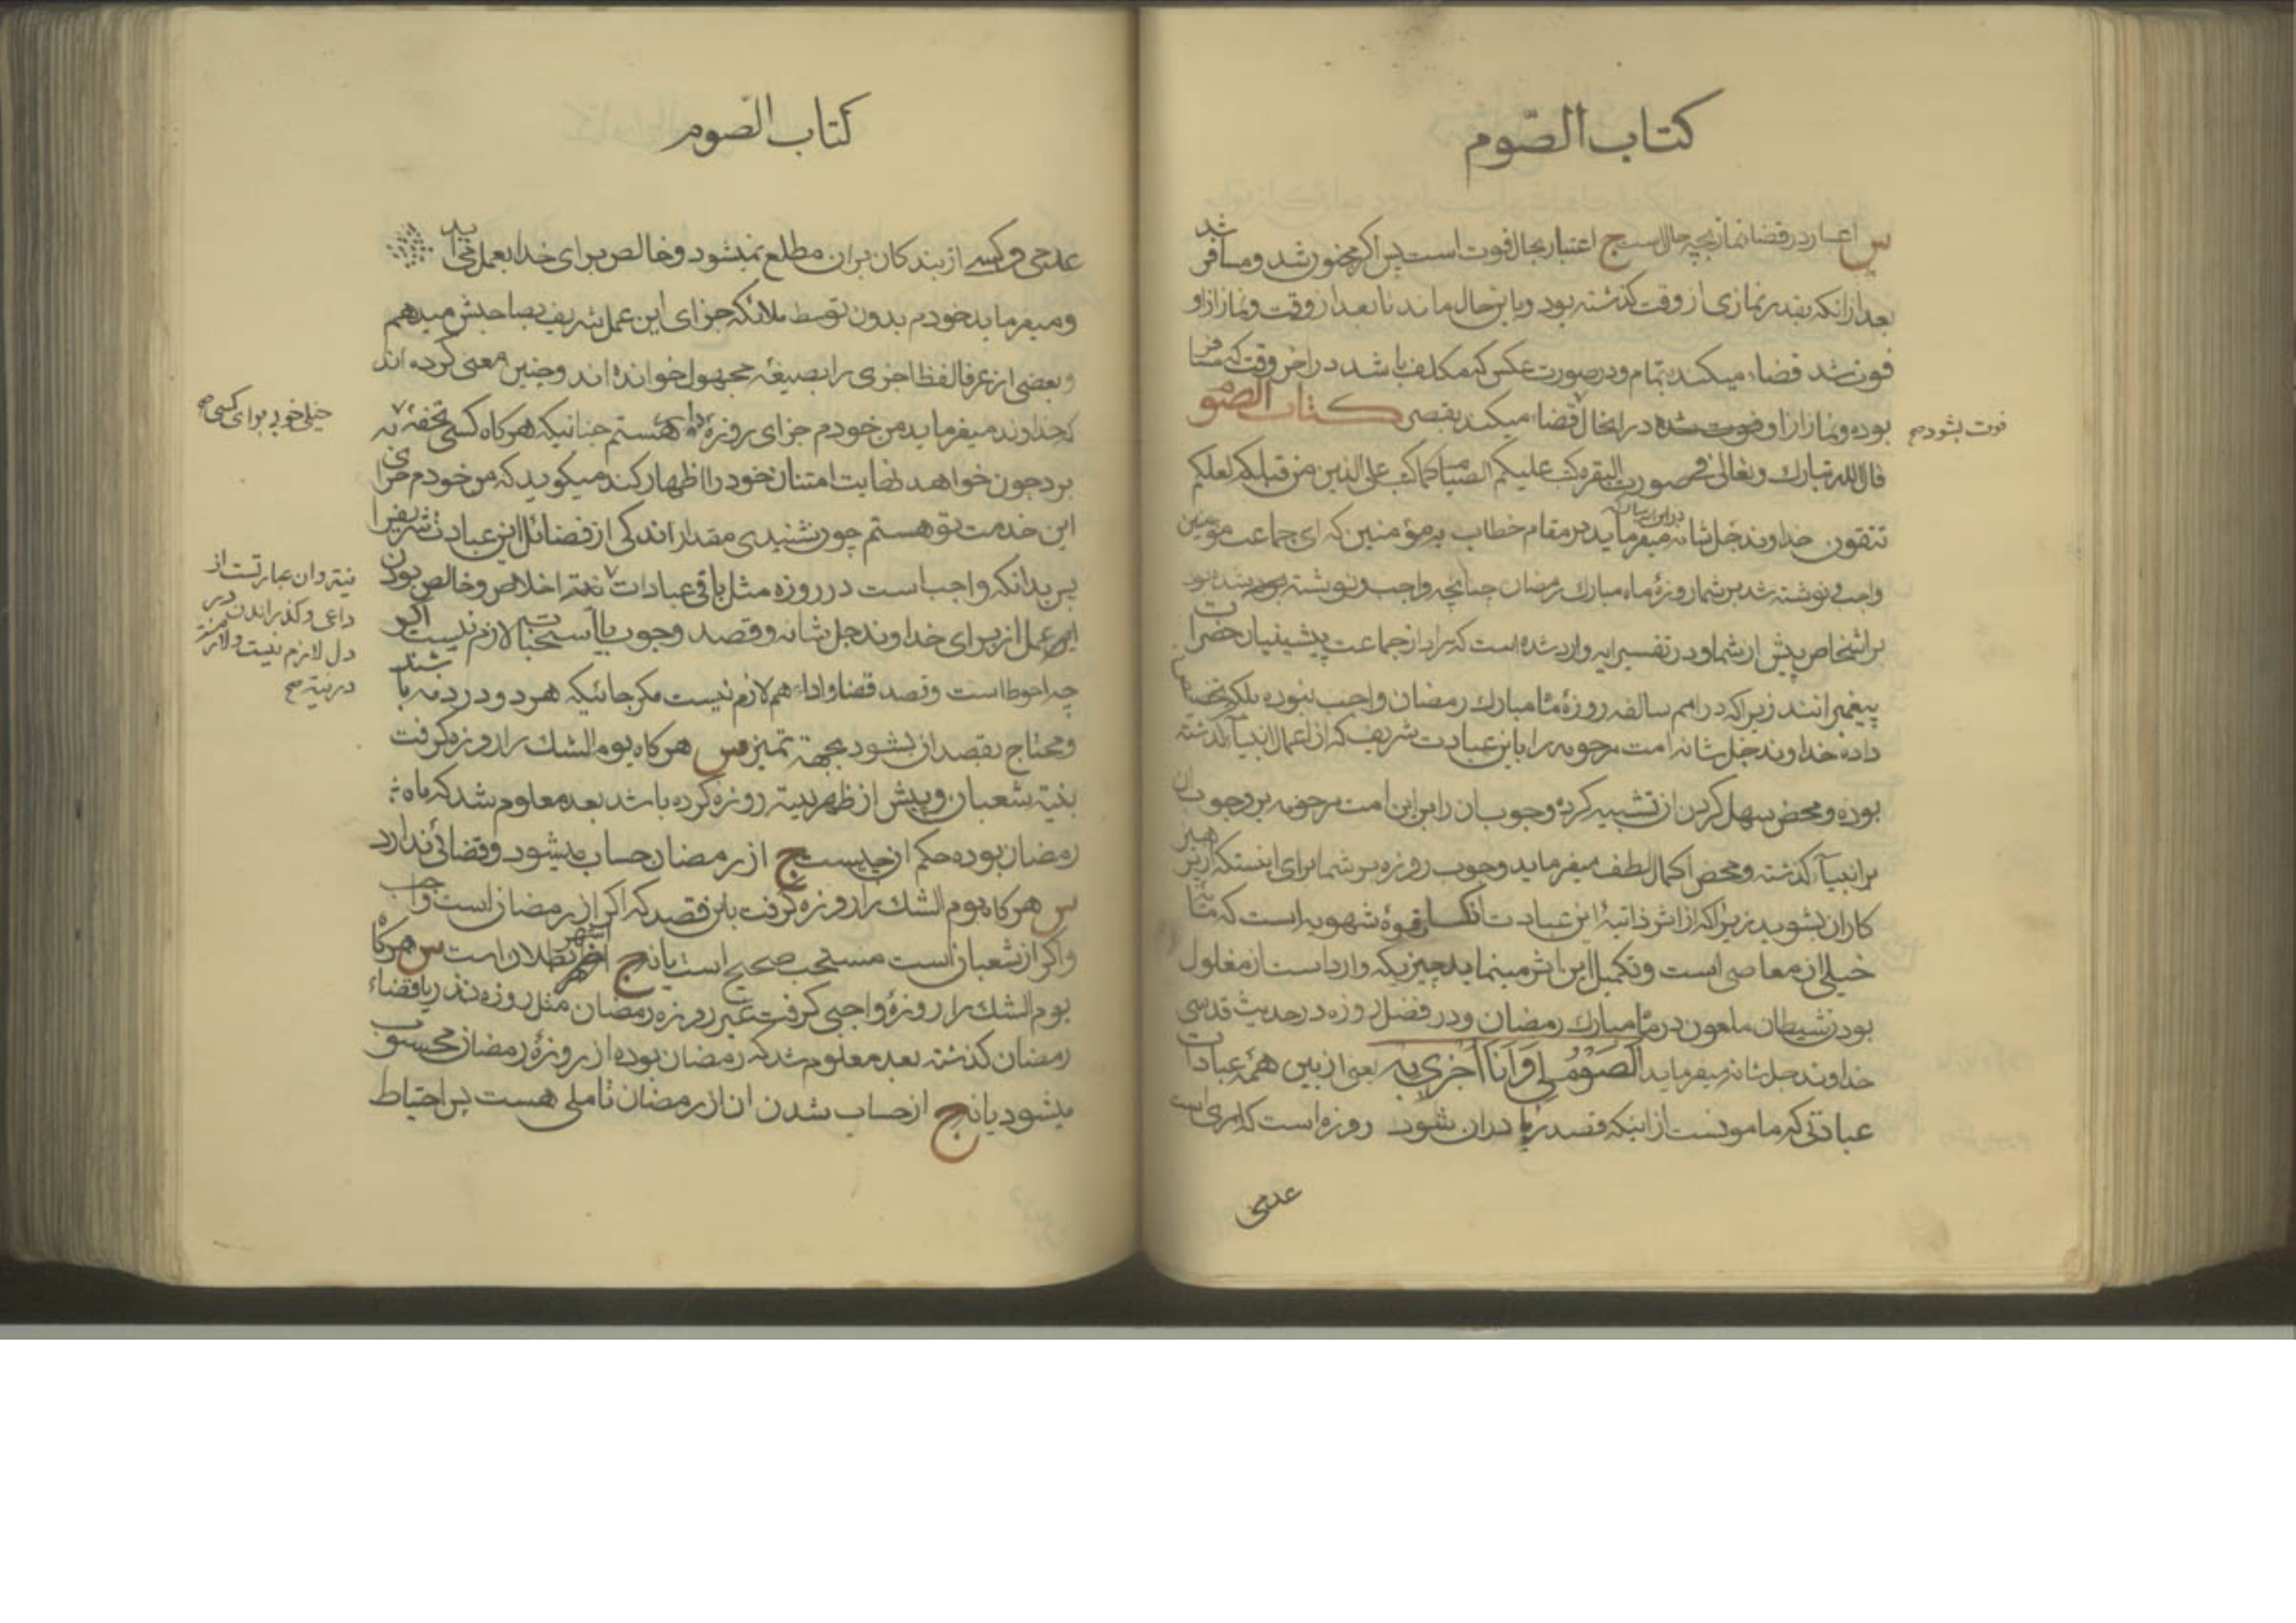 كتاب الصّوم
س اعتبار در قضا نماز بچه حال است ج اعتبار بحال فوت است پس اگر حضور شد و مسافر شد
بعد از انکه بقدر نمازی از وقت کذشته بود و باین حال ماند تا بعد از وقت و نماز از او
فوت شد قضاء میکند بتمام و در صورت عکس که مکلف باشد در اخر وقت که مسافر
بوده و نماز از او فوت شده در اینحال قضا میکند بقصر كتاب الصّوم
فوت بشود صح
قال الله تبارك وتعالى فی صورت البقره كتب علیكم الصیام كما كتب علی الذین من قبلكم لعلكم
تتقون خداوند جل شانه میفرماید در مقام خطاب به مؤمنین که ای جماعت مؤمنین
واجب و نوشته شد بر شما روزهٔ ماه مبارك رمضان چنانچه واجب و نوشته بوده
بر اشخاص پیش از شما و در تفسیر ایه وارد شده است که مراد از جماعت پیشینیان حضرات
پیغمبرانند زیرا که در امم سالفه روزهٔ ماه مبارك رمضان واجب نبوده بلکه
داده خداوند جل شانه امت مرحومه را باین عبادت شریف که از اعمال انبیآء کذشته
بوده و محض سهل کردن ان تشبیه کرده وجوب ان را بر این امت مرحومه بر وجوب ان
بر انبیآء کذشته و محض اکمال لطف میفرماید وجوب روزه بر شما برای اینستکه از پرهیز
کاران بشوید زیرا که از اثر ذاتیهٔ این عبادت انکسار قوهٔ شهویه است که منشأ
خیلی از معاصی است و تکمیل این اثر مینماید چیزیکه وارد است از مغلول
بودن شیطان ملعون در ماه مبارك رمضان و در فضل روزه در حدیث قدسی
خداوند جل شانه میفرماید الصَوْمُ لِی وَاَنَا اَجْزی بِه یعنی از بین همهٔ عبادات
عبادتی که مامونست از اینکه قصد ریا در ان شود روزه است که امری است
عدمی
كتاب الصّوم
عدمی و کسی از بندکان بر ان مطلع نمیشود و خالص برای خدا بعمل می اید
و میفرماید خودم بدون توسط ملائکه جزای این عمل شریف بصاحبش میدهم
و بعضی از عرفا لفظ اجزی را بصیغهٔ مجهول خوانده اند و چنین معنی کرده اند
که خداوند میفرماید من خودم جزای روزهٔ هستم چنانیکه هرکاه کسی تحفهٔ به
خیلی خوب برای کسی صح
برد چون خواهد نهایت امتنان خود را اظهار کند میکوید که من خودم جزای
این خدمت تو هستم چون شنیدی مقدار اندکی از فضائل این عبادت شریف را
پس بدانکه واجب است در روزه مثل باقی عبادات نیته اخلاص و خالص بودن
نیته و ان عبارتست از
داعی و کذراندن در
دل لازم نیست و لازم
در نیته صح
این عمل از برای خداوند جل شانه و قصد وجوب یا استحباب لازم نیست اکر
چه احوط است و قصد قضا و اداء هم لازم نیست مکر جائیکه هر دو در ذمه باشند
و محتاج بقصد ان بشود بجهة تمیز س هرکاه یوم الشك را روزه کرفت
بنیّة شعبان و پیش از ظهر نیته روزه کرده باشد بعد معلوم شد که ماه
رمضان بوده حکم ان چیست ج از رمضان حساب میشود و قضائی ندارد
س هرکاه یوم الشك را روزه کرفت باین قصد که اکر از رمضان است واجب
و اکر از شعبان است مستحب صحیح است یا نه ج اشهر بطلان است س هرکاه
یوم الشك را روزهٔ واجبی کرفت غیر روزه رمضان مثل روزه نذر یا قضاء
رمضان کذشته بعد معلوم شد که رمضان بوده از روزهٔ رمضان محسوب
میشود یا نه ج از حساب شدن ان از رمضان تاملی هست پس احتیاط